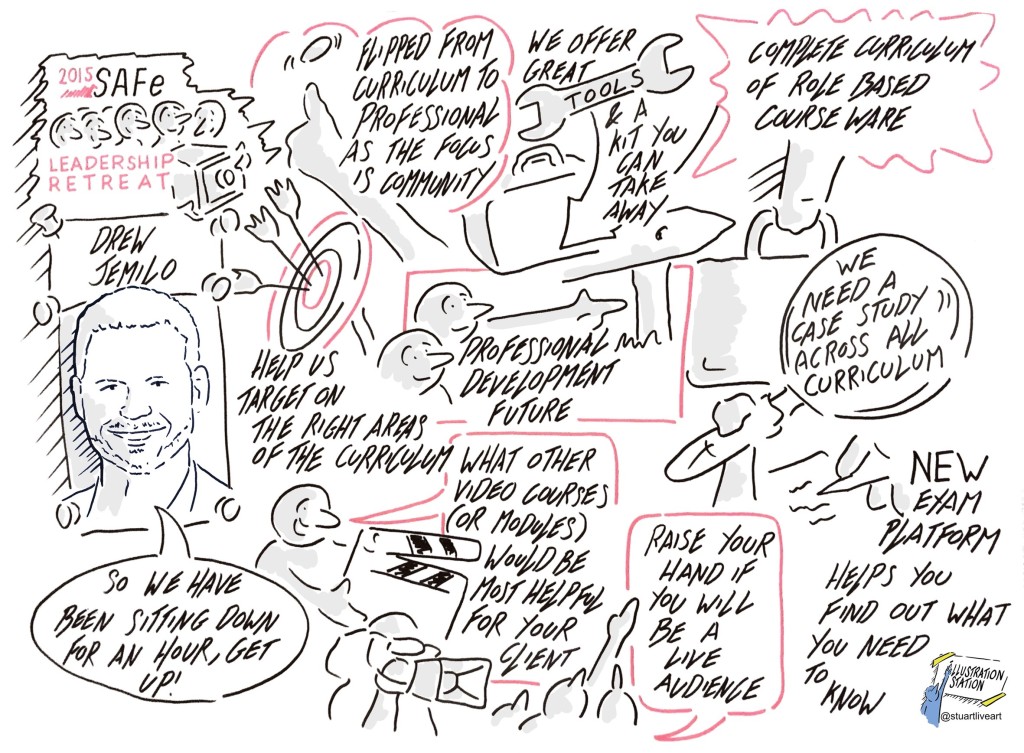 2015 SAFe
LEADERSHIP
RETREAT
DREW
JEMILO
SO WE HAVE
BEEN SITTING DOWN
FOR AN HOUR, GET
UP!
FLIPPED FROM
CURRICULUM TO
PROFESSIONAL
AS THE FOCUS
IS COMMUNITY
WE OFFER
GREAT
TOOLS
& A
KIT YOU
CAN
TAKE
AWAY
COMPLETE CURRICULUM
OF ROLE BASED
COURSE WARE
HELP US
TARGET ON
THE RIGHT AREAS
OF THE CURRICULUM
PROFESSIONAL
DEVELOPMENT
FUTURE
WE
NEED A
CASE STUDY
ACROSS ALL
CURRICULUM
WHAT OTHER
VIDEO COURSES
(OR MODULES)
WOULD BE
MOST HELPFUL
FOR YOUR
CLIENT
RAISE YOUR
HAND IF
YOU WILL
BE A
LIVE
AUDIENCE
NEW
EXAM
PLATFORM
HELPS YOU
FIND OUT WHAT
YOU NEED
TO
KNOW
ILLUSTRATION
STATION
@stuartliveart